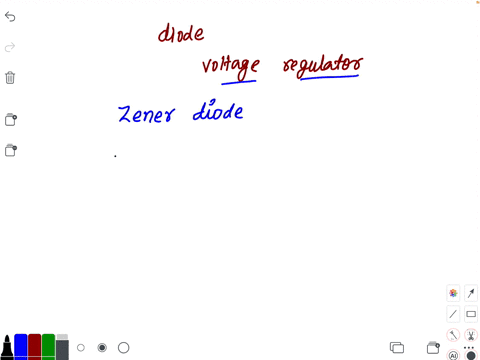 diode
voltage regulator
Zener diode
AI